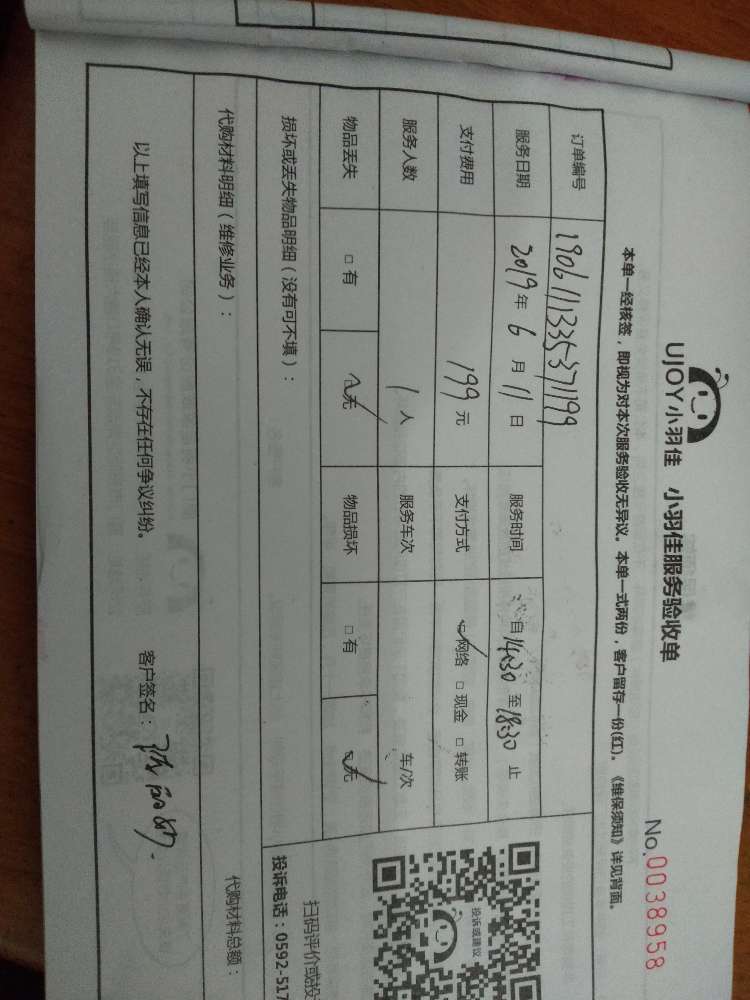 UJOY小羽佳 小羽佳服务验收单
No.0038958
本单一经核签，即视为对本次服务验收无异议。本单一式两份，客户留存一份(红)。《维保须知》详见背面。
订单编号 1906111335371199
服务日期 2019年6月11日 服务时间 自14:30至18:30止
支付费用 199元 支付方式 ☑网络 □现金 □转账
服务人数 1人 服务车次 车/次
物品丢失 □有 ☑无 物品损坏 □有 ☑无
投诉或建议
扫码评价或投
投诉电话：0592-517
损坏或丢失物品明细（没有可不填）：
代购材料明细（维修业务）： 代购材料总额：
以上填写信息已经本人确认无误，不存在任何争议纠纷。 客户签名：